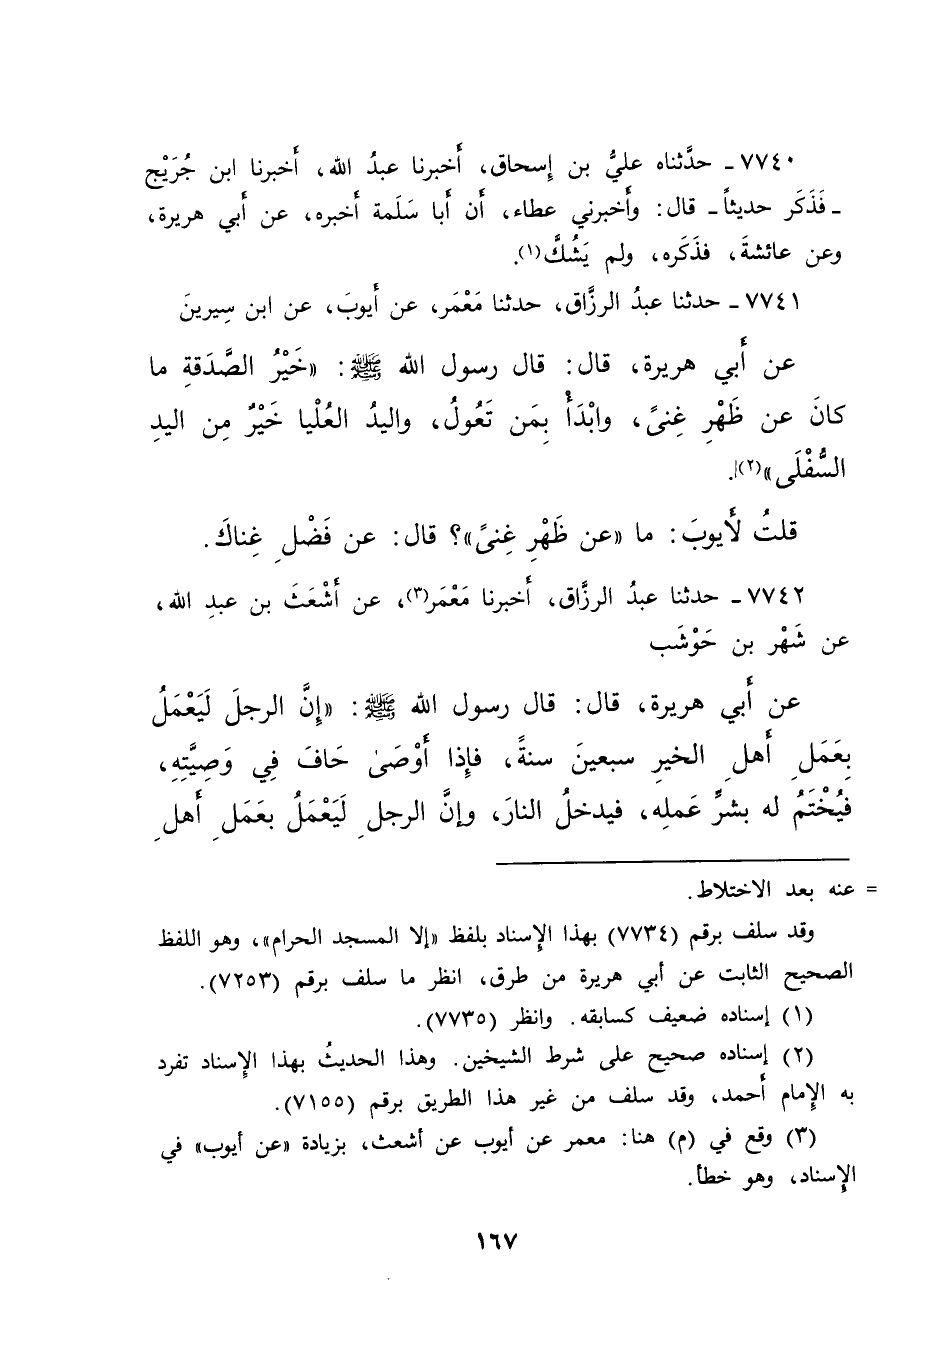 ٧٧٤٠ ـ حدَّثناه عليُّ بن إِسحاق، أَخبرنا عبدُ الله، أَخبرنا ابن جُرَيْج
ـ فَذَكَر حديثاً ـ قال: وأَخبرني عطاء، أَن أَبا سَلَمة أَخبره، عن أَبي هريرة،
وعن عائشةَ، فذَكَره، ولم يَشُكَّ(١).
٧٧٤١ ـ حدثنا عبدُ الرزَّاق، حدثنا مَعْمَر، عن أَيوبَ، عن ابن سِيرينَ
عن أَبي هريرة، قال: قال رسول الله ﷺ: «خَيْرُ الصَّدَقةِ ما
كانَ عن ظَهْرِ غِنىً، وابْدَأْ بِمَن تَعُولُ، واليدُ العُلْيا خَيْرٌ مِن اليدِ
السُّفْلَى»(٢).
قلتُ لأَيوبَ: ما «عن ظَهْرِ غِنىً»؟ قال: عن فَضْلِ غِناكَ.
٧٧٤٢ ـ حدثنا عبدُ الرزَّاق، أَخبرنا مَعْمَر(٣)، عن أَشْعَثَ بن عبدِ الله،
عن شَهْر بن حَوْشَب
عن أَبي هريرة، قال: قال رسول الله ﷺ: «إِنَّ الرجلَ لَيَعْمَلُ
بِعَمَلِ أَهلِ الخيرِ سبعينَ سنةً، فإِذا أَوْصَىٰ حَافَ فِي وَصِيَّتِهِ،
فَيُخْتَمُ له بشرِّ عَملِه، فيدخلُ النارَ، وإنَّ الرجلِ لَيَعْمَلُ بعَمَلِ أَهلِ
= عنه بعد الاختلاط.
وقد سلف برقم (٧٧٣٤) بهذا الإِسناد بلفظ «إلا المسجد الحرام»، وهو اللفظ
الصحيح الثابت عن أبي هريرة من طرق، انظر ما سلف برقم (٧٢٥٣).
(١) إسناده ضعيف كسابقه. وانظر (٧٧٣٥).
(٢) إسناده صحيح على شرط الشيخين. وهذا الحديثُ بهذا الإِسناد تفرد
به الإِمام أَحمد، وقد سلف من غير هذا الطريق برقم (٧١٥٥).
(٣) وقع في (م) هنا: معمر عن أيوب عن أشعث، بزيادة «عن أيوب» في
الإِسناد، وهو خطأ.
١٦٧